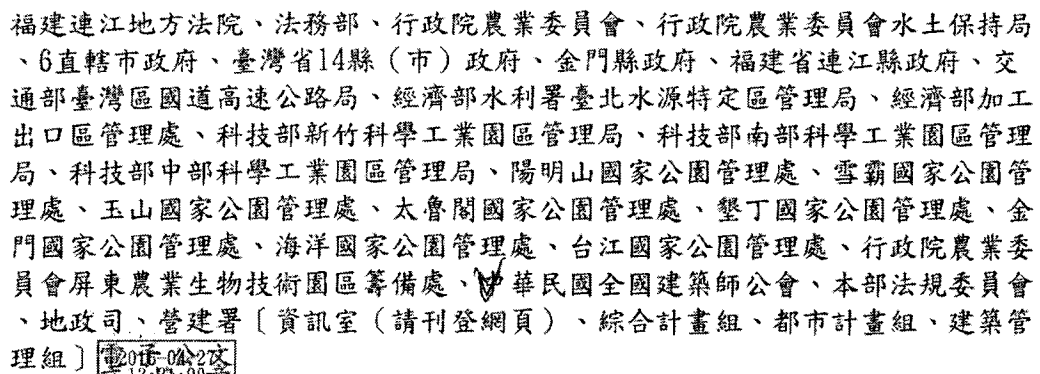 福建連江地方法院、法務部、行政院農業委員會、行政院農業委員會水土保持局
、6直轄市政府、臺灣省14縣（市）政府、金門縣政府、福建省連江縣政府、交
通部臺灣區國道高速公路局、經濟部水利署臺北水源特定區管理局、經濟部加工
出口區管理處、科技部新竹科學工業園區管理局、科技部南部科學工業園區管理
局、科技部中部科學工業園區管理局、陽明山國家公園管理處、雪霸國家公園管
理處、玉山國家公園管理處、太魯閣國家公園管理處、墾丁國家公園管理處、金
門國家公園管理處、海洋國家公園管理處、台江國家公園管理處、行政院農業委
員會屏東農業生物技術園區籌備處、華民國全國建築師公會、本部法規委員會
、地政司、營建署〔資訊室（請刊登網頁）、綜合計畫組、都市計畫組、建築管
理組〕電子公文